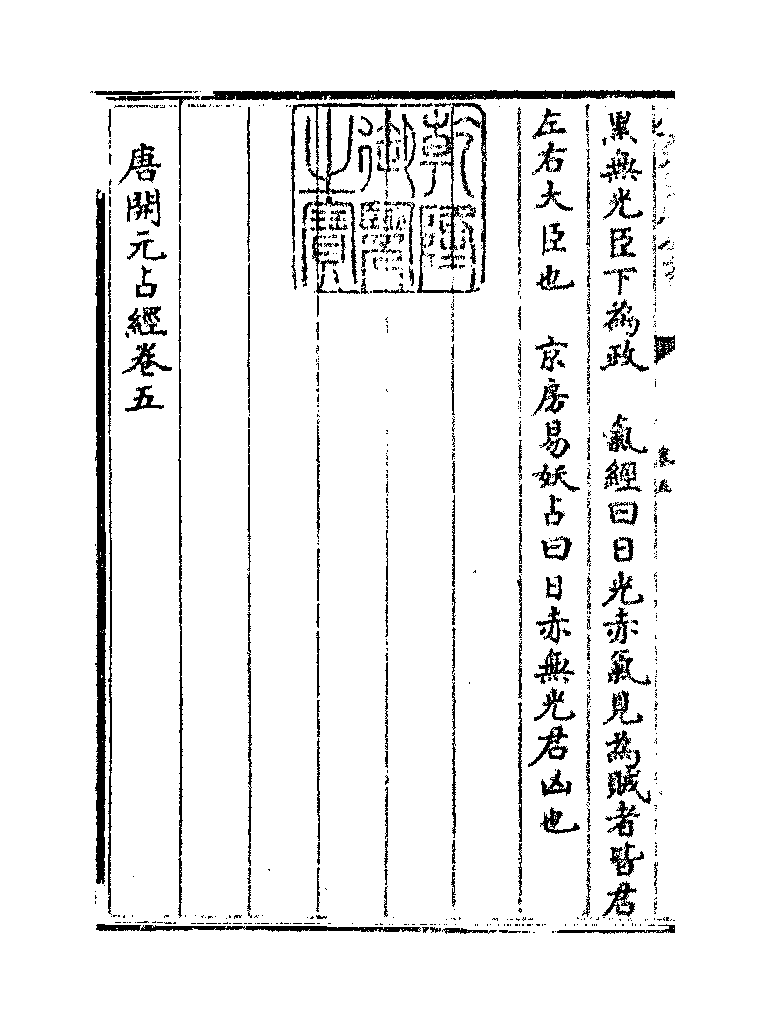 黑無光臣下為政　氣經曰日光赤氣見為賊者皆君
左右大臣也　京房易妖占曰日赤無光君凶也
乾隆御覽之寶
唐開元占經卷五
卷五